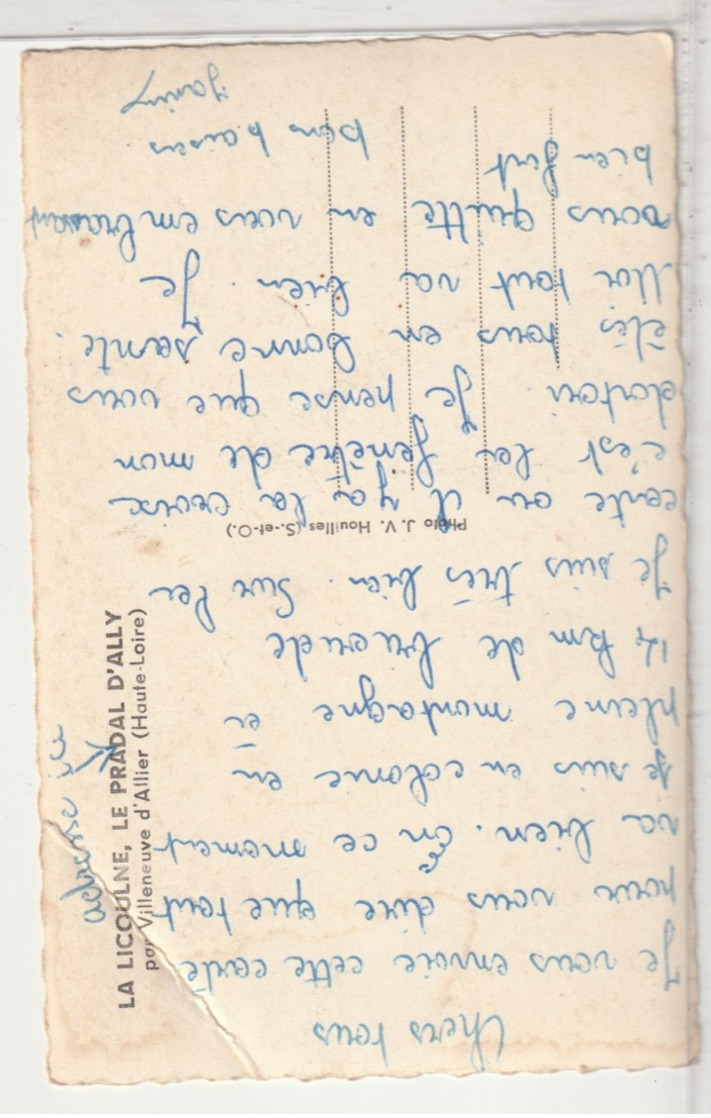 Chers tous
Je vous envoie cette carte
pour vous dire que tout
va bien. En ce moment
je suis en colonie en
pleine montagne à
14 km de brioude
Je suis très bien. Sur la
carte ou il y a la croix
c'est la fenêtre de mon
dortoir. Je pense que vous
êtes tous en bonne santé.
Moi tout va bien. Je
vous quitte en vous embrassant
bien fort
bons baisers.
adresse ici
LA LICOULNE, LE PRADAL D'ALLY
par Villeneuve d'Allier (Haute-Loire)
Photo J. V. Houilles (S.-et-O.)